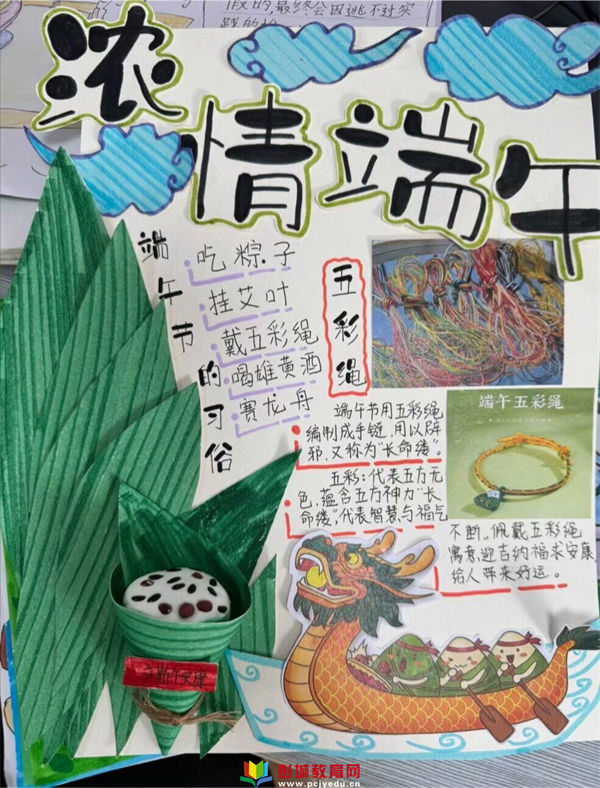 假的最终会因逃不过实
浓情端午
端午节的习俗
吃粽子
挂艾叶
戴五彩绳
喝雄黄酒
赛龙舟
五彩绳
端午五彩绳
端午节用五彩绳
编制成手链,用以辟
邪,又称为“长命缕”。
五彩:代表五方五
色,蕴含五方神力“长
命缕”,代表智慧与福气
不断。佩戴五彩绳
寓意迎吉纳福求安康
给人带来好运。
彭城教育网
www.pcjyedu.cn